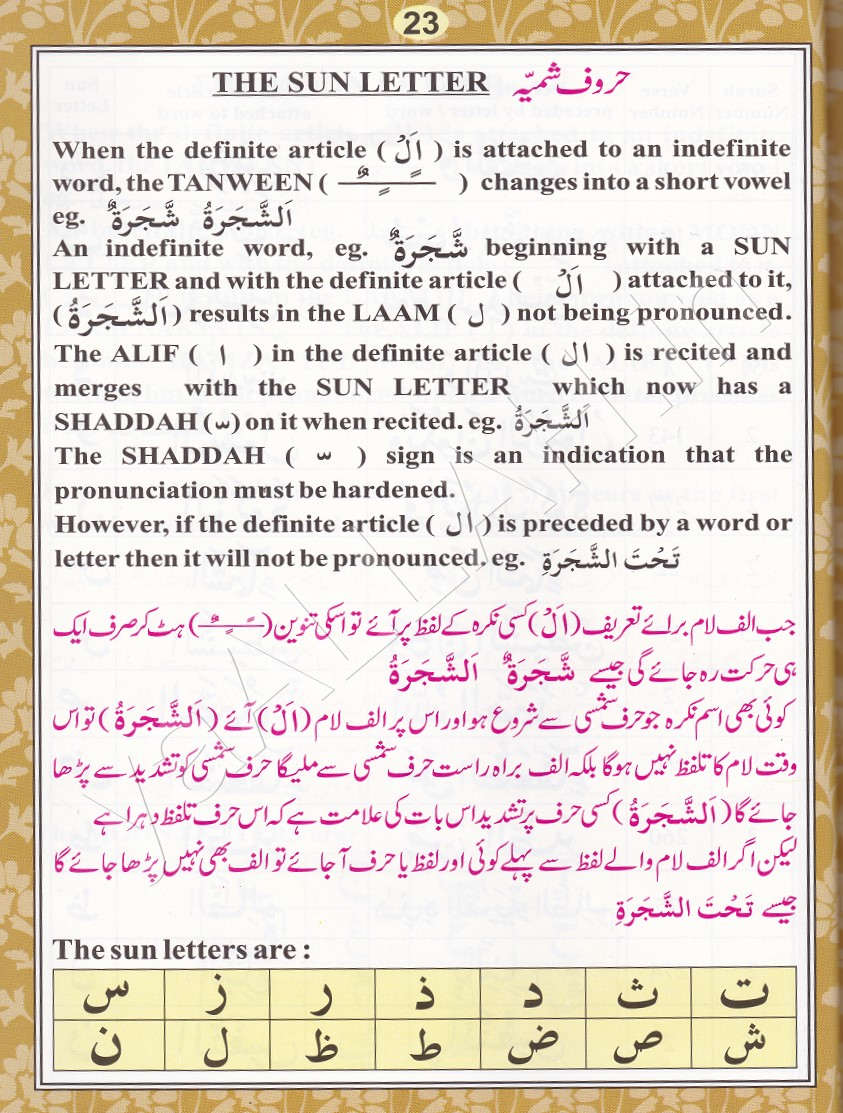 23
THE SUN LETTER حروف شمسیّہ
When the definite article ( اَلْ ) is attached to an indefinite
word, the TANWEEN ( ـًـٍـٌ ) changes into a short vowel
eg. شَّجَرَةٌ اَلشَّجَرَةُ
An indefinite word, eg. شَّجَرَةٌ beginning with a SUN
LETTER and with the definite article ( اَلْ ) attached to it,
( اَلشَّجَرَةُ ) results in the LAAM ( ل ) not being pronounced.
The ALIF ( ا ) in the definite article ( ال ) is recited and
merges with the SUN LETTER which now has a
SHADDAH ( ّ ) on it when recited. eg. اَلشَّجَرَةُ
The SHADDAH ( ّ ) sign is an indication that the
pronunciation must be hardened.
However, if the definite article ( ال ) is preceded by a word or
letter then it will not be pronounced. eg. تَحْتَ الشَّجَرَةِ
جب الف لام برائے تعریف (اَلْ) کسی نکرہ کے لفظ پر آئے تو اسکی تنوین (ـًـٍـٌ) ہٹ کر صرف ایک
ہی حرکت رہ جائے گی جیسے شَّجَرَةٌ اَلشَّجَرَةُ
کوئی بھی اسم نکرہ جو حرف شمسی سے شروع ہو اور اس پر الف لام (اَلْ) آئے (اَلشَّجَرَةُ) تو اس
وقت لام کا تلفظ نہیں ہوگا بلکہ الف براہ راست حرف شمسی سے ملیگا حرف شمسی کو تشدید سے پڑھا
جائے گا (اَلشَّجَرَةُ) کسی حرف پر تشدید اس بات کی علامت ہے کہ اس حرف تلفظ دہرا ہے
لیکن اگر الف لام والے لفظ سے پہلے کوئی اور لفظ یا حرف آجائے تو الف بھی نہیں پڑھا جائے گا
جیسے تَحْتَ الشَّجَرَةِ
The sun letters are :
ت ث د ذ ر ز س
ش ص ض ط ظ ل ن